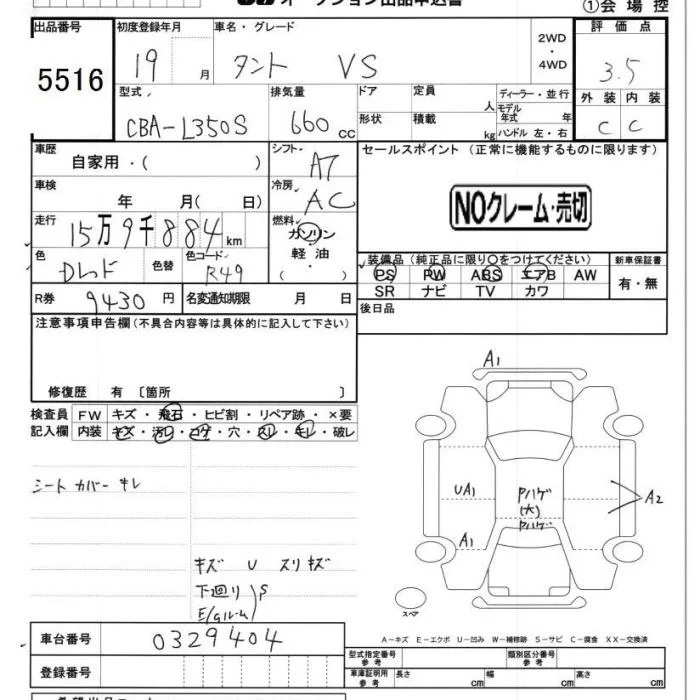 オークション出品申込書 ①会場控
出品番号 初度登録年月 車名・グレード 2WD・4WD 評価点
5516 19 月 タント VS 3.5
型式 排気量 ドア 定員 人 ディーラー・並行 外装 内装
CBA-L350S 660 cc 形状 積載 kg モデル年式 年 ハンドル 左・右 C C
車歴 自家用・( ) シフト A7 セールスポイント (正常に機能するものに限ります)
車検 年 月( 日) 冷房 AC
NOクレーム・売切
走行 15万9千884km 燃料 ガソリン 軽油 ( ・ )
色 Dレッド 色替 色コード R49
装備品 (純正品に限り○をつけてください) 新車保証書
PS PW ABS エアB AW 有・無
SR ナビ TV カワ
R券 9430円 名変通知期限 月 日
後日品
注意事項申告欄 (不具合内容等は具体的に記入して下さい)
修復歴 有 〔箇所 〕
検査員 FW キズ・飛石・ヒビ割・リペア跡・×要
記入欄 内装 キズ・汚レ・コゲ・穴・スレ・キレ・破レ
シートカバーキレ
キズ U スリキズ
下廻り S
E/gルーム
A1
UA1
Pハゲ
(大)
Pハゲ
A2
A1
スペア
A-キズ E-エクボ U-凹み W-補修跡 S-サビ C-腐食 XX-交換済
車台番号 0329404
型式指定番号 参考 類別区分番号 参考
登録番号
車庫証明用 参考 長さ cm 幅 cm 高さ cm